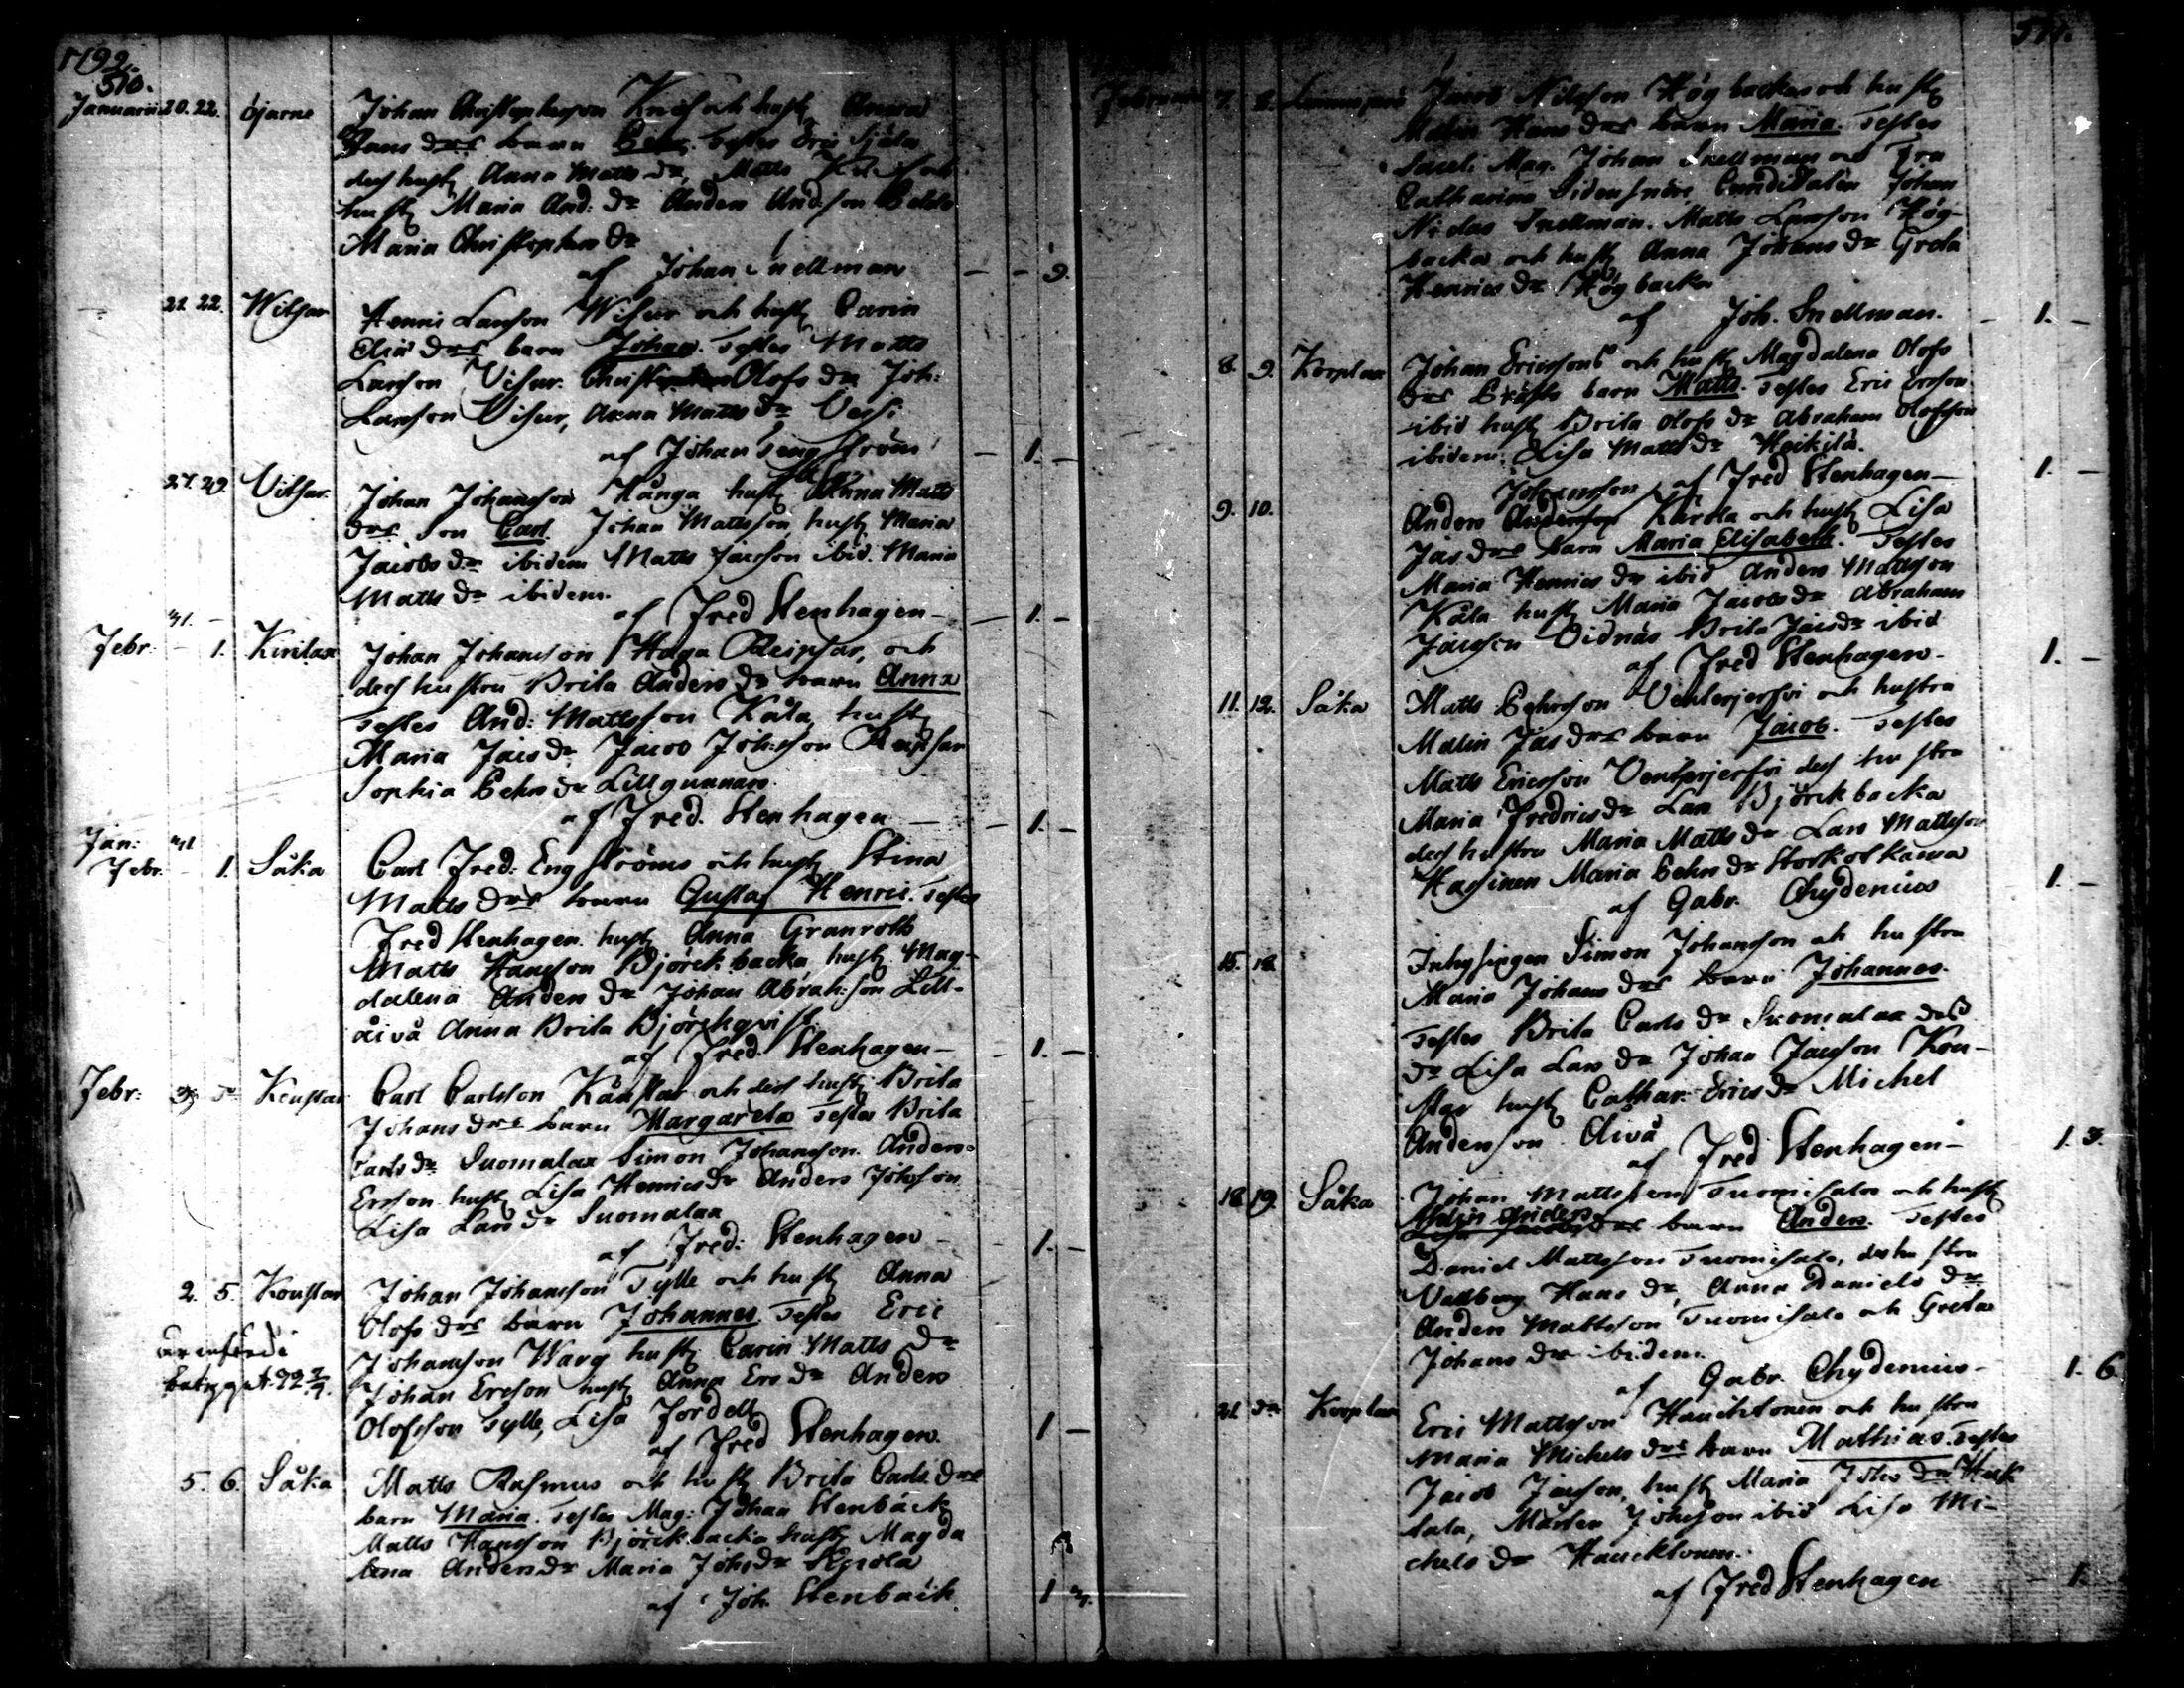 1792.
510.
Januarii 20. 22. Gjarne Johan Christophersson Knif och hust Anna
Hans dr barn Testes Eric Sjöla
des hust Anna Matts dr, Matts
hust Maria And: dr Anders Andsson
Maria Christophers dr
af Johan Snellman - - 9.
21. 22. Witsar Henric Larsson Wisur och hust Carin
Elis drs barn Johan. Testes Matts
Larsson Visur. Olofs dr Joh:
Larsson Visur, Anna Matts dr
af Johan Tengström - 1. -
27. 29. Vitsar Johan Johansson Hånga hust Anna Matts
drs son Carl. Johan Mattsson hust Maria
Jacobs dr ibidem Matts Jacsson ibid. Maria
Matts dr ibidem.
af Fred Stenhagen - 1. -
31. -
Febr: - 1. Kirilax Johan Johansson Haga och
des hustru Brita Anders dr barn Anna
Testes And: Mattsson Kåla, hust
Maria Jacs dr Jacob Johsson
Sophia Pehrs dr Lillgunnars
af Fred. Stenhagen - 1. -
Jan: 31
Febr. - 1. Såka Carl Fred: Engströms och hust Stina
Matts drs barn Gustaf Henric. Testes
Fred Stenhagen hust Anna Granroth
Matts Hansson Björckbacka hust Mag-
dalena Anders dr Johan Abrahsson Lill-
åivå Anna Brita Björckqvist
af Fred. Stenhagen - 1. -
Febr: Koustar Carl Carlsson Kaustar och des hust Brita
Johans drs barn Margareta Testes Brita
Carls dr Suomalax Simon Johansson. Anders
Ersson hust Lisa Henrics dr Anders Johsson
Lisa Lars dr Suomalax
af Fred: Stenhagen - 1. -
2. 5. Koustar Johan Johansson Tylle och hust Anna
Olofs drs barn Johannes Testes Eric
Johansson Warg hust Carin Matts dr
Johan Ersson hust Anna Ers dr Anders
Olofsson Tylle, Lisa Fordell
af Fred Stenhagen. 1 -
5. 6. Såka Matts Rasmus och hust Brita Carls drs
barn Maria. Testes Mag: Johan Stenbäck
Matts Hansson Björckbacka hust Magda
lena Anders dr Maria Johs dr
af Joh. Stenbäck. 1
511.
Februarii 7. 8. Jacob Nilsson Högbacka och hust
Malin Hans drs barn Maria. Testes
Mag. Johan Snellman och Fru
Catharina Candidaten Johan
Niclas Snellman. Matts Larsson Hög-
backa och hust Anna Johans dr Greta
Henrics dr Högbacka
af Joh. Snellman. - 1. -
8. 9. Korplax Johan Ericssons och hust Magdalena Olofs
drs barn Matts. Testes Eric Ersson
ibid hust Brita Olofs dr Abraham Olofsson
ibidem. Lisa Matts dr Heikilä.
af Fred Stenhagen - 1. -
9. 10. Johansson
Anders Kärola och hust Lisa
Jacs drs barn Maria Elisabeth. Testes
Maria Henrics dr ibid Anders Mattsson
Kåla hust Maria Jacobs dr Abraham
Jacsson Vidnäs Brita Jacs dr ibid
af Fred Stenhagen - 1. -
11. 12. Såka Matts Pehrsson Venterjerfvi och hustru
Malin Jacs drs barn Jacob. Testes
Matts Ericsson Ventterjerfvi des hustru
Maria Fredrics dr Lars Björckbacka
des hustru Maria Matts dr Lars Mattsson
Hassinen Maria Pehrs dr Storkorkama
af Gabr. Chydenius 1. -
15. 18. Inhysingen Simon Johansson och hustru
Maria Johans drs barn Johannes.
Testes Brita Carls dr Suomalax
dr Lisa Lars dr Johan Jacsson Kou-
star hust Cathar. Erics dr Michel
Andersson Åivå
af Fred Stenhagen - 1. 3.
18 19. Såka Johan Mattsson Tuomisalo och hust
Malin Anders
drs barn Anders. Testes
Daniel Mattsson Tuomisalo, des hustru
Valborg Hans dr, Anna Daniels dr
Anders Mattsson Tuomisalo och Greta
Johans dr ibidem.
af Gabr. Chydenius - 1. 6.
21. dr Korplax Eric Mattsson Haucktonen och hustru
Maria Michels drs barn Mathias. Testes
Jacob Jacsson, hust Maria Johs dr
Mårten Johsson ibid Lisa Mi-
chels dr Haucktonen.
af Fred Stenhagen - 1. -